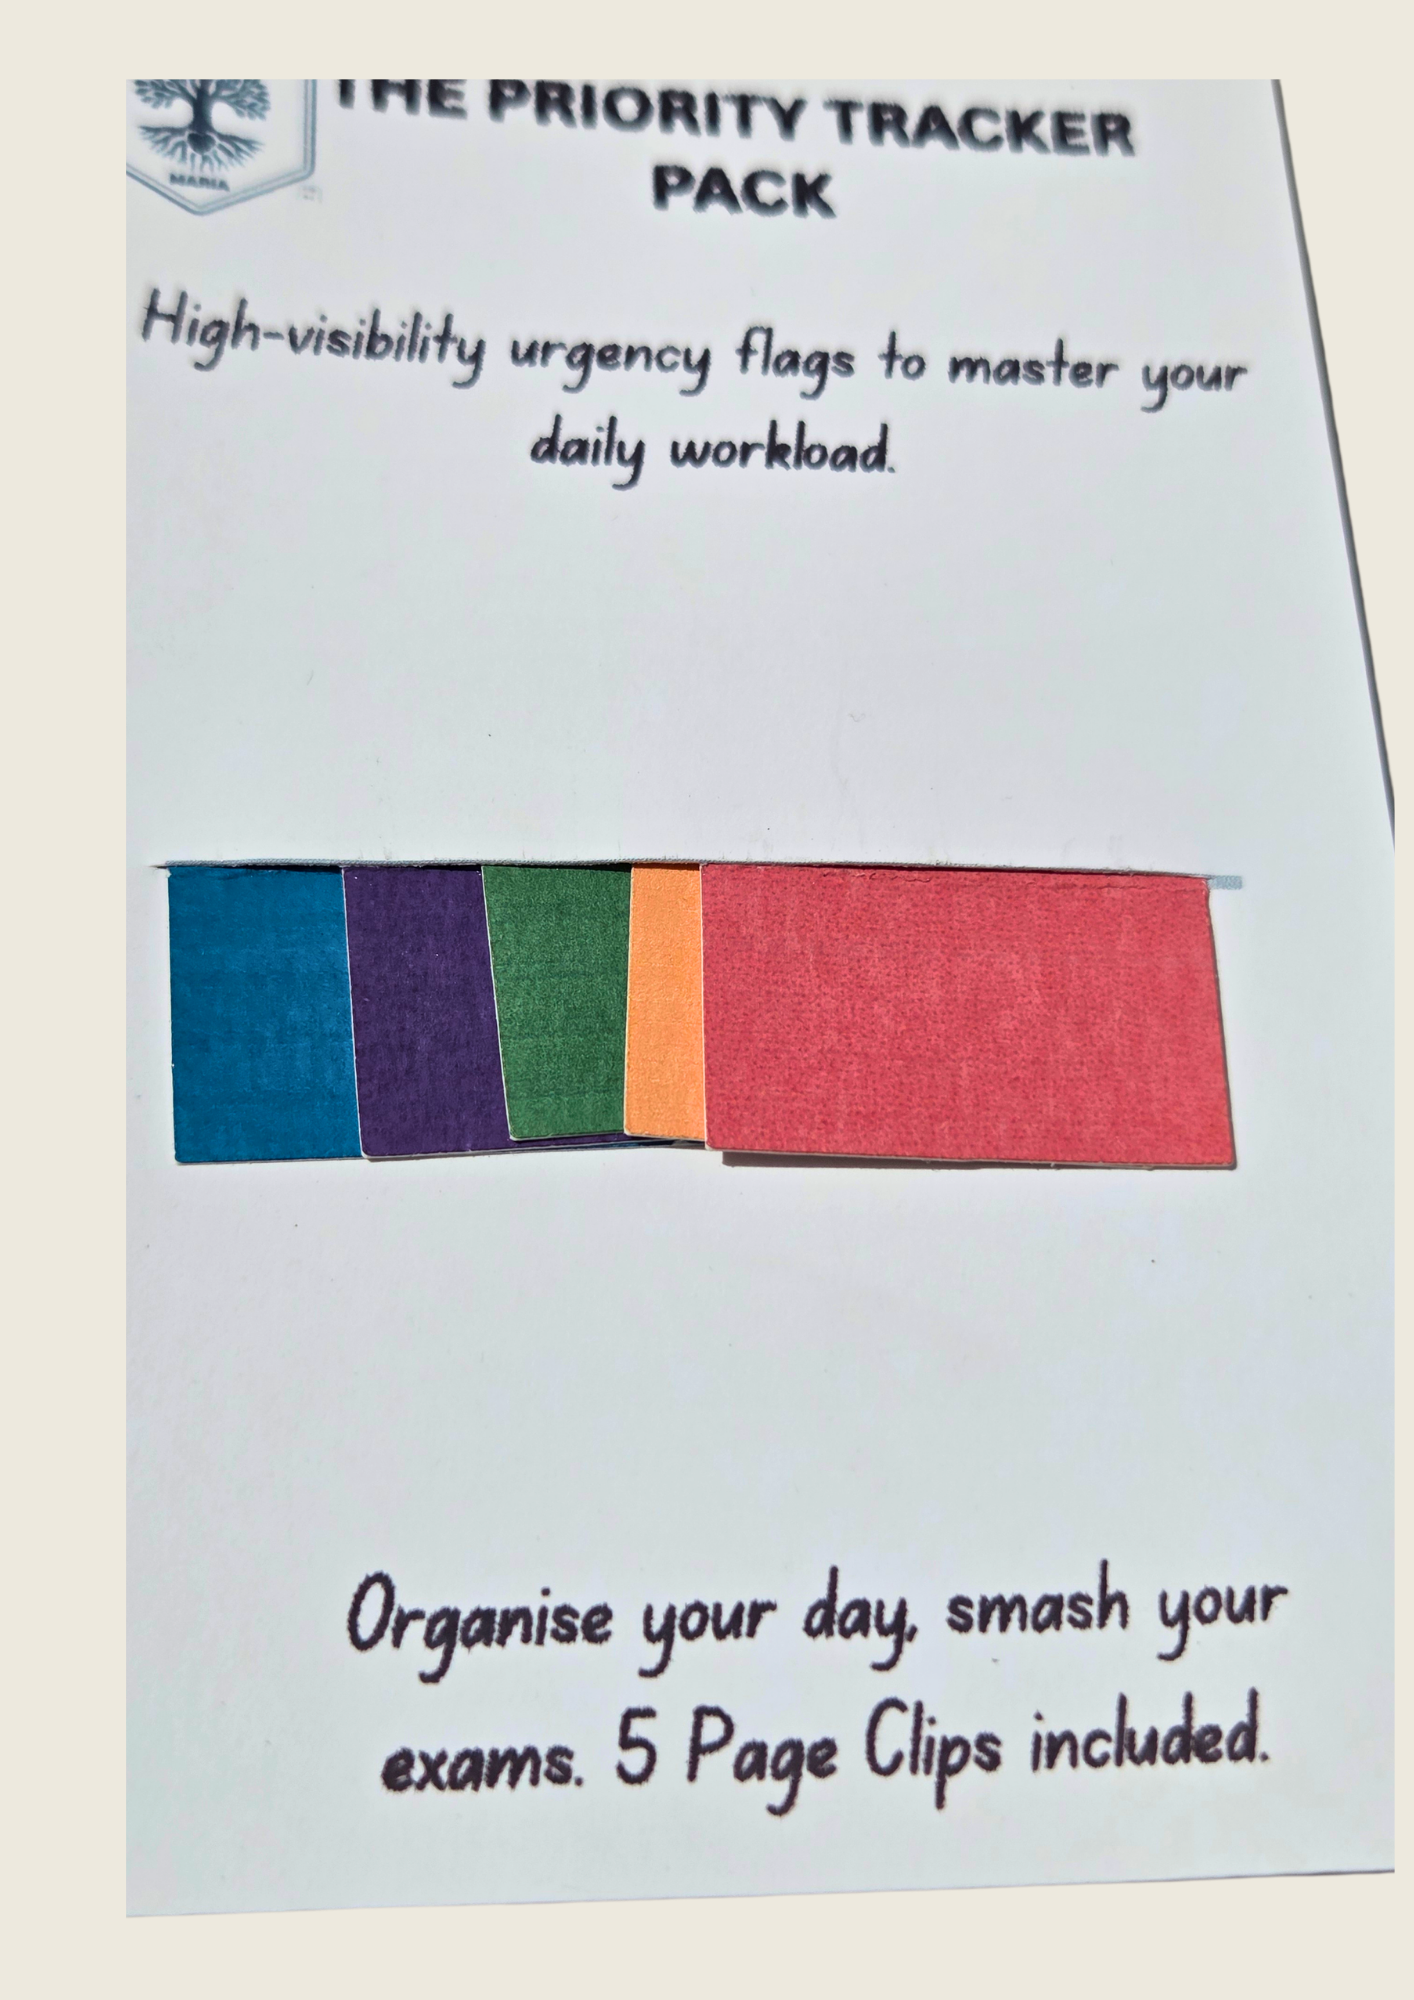 MARIA
THE PRIORITY TRACKER
PACK
High-visibility urgency flags to master your
daily workload.
Organise your day, smash your
exams. 5 Page Clips included.